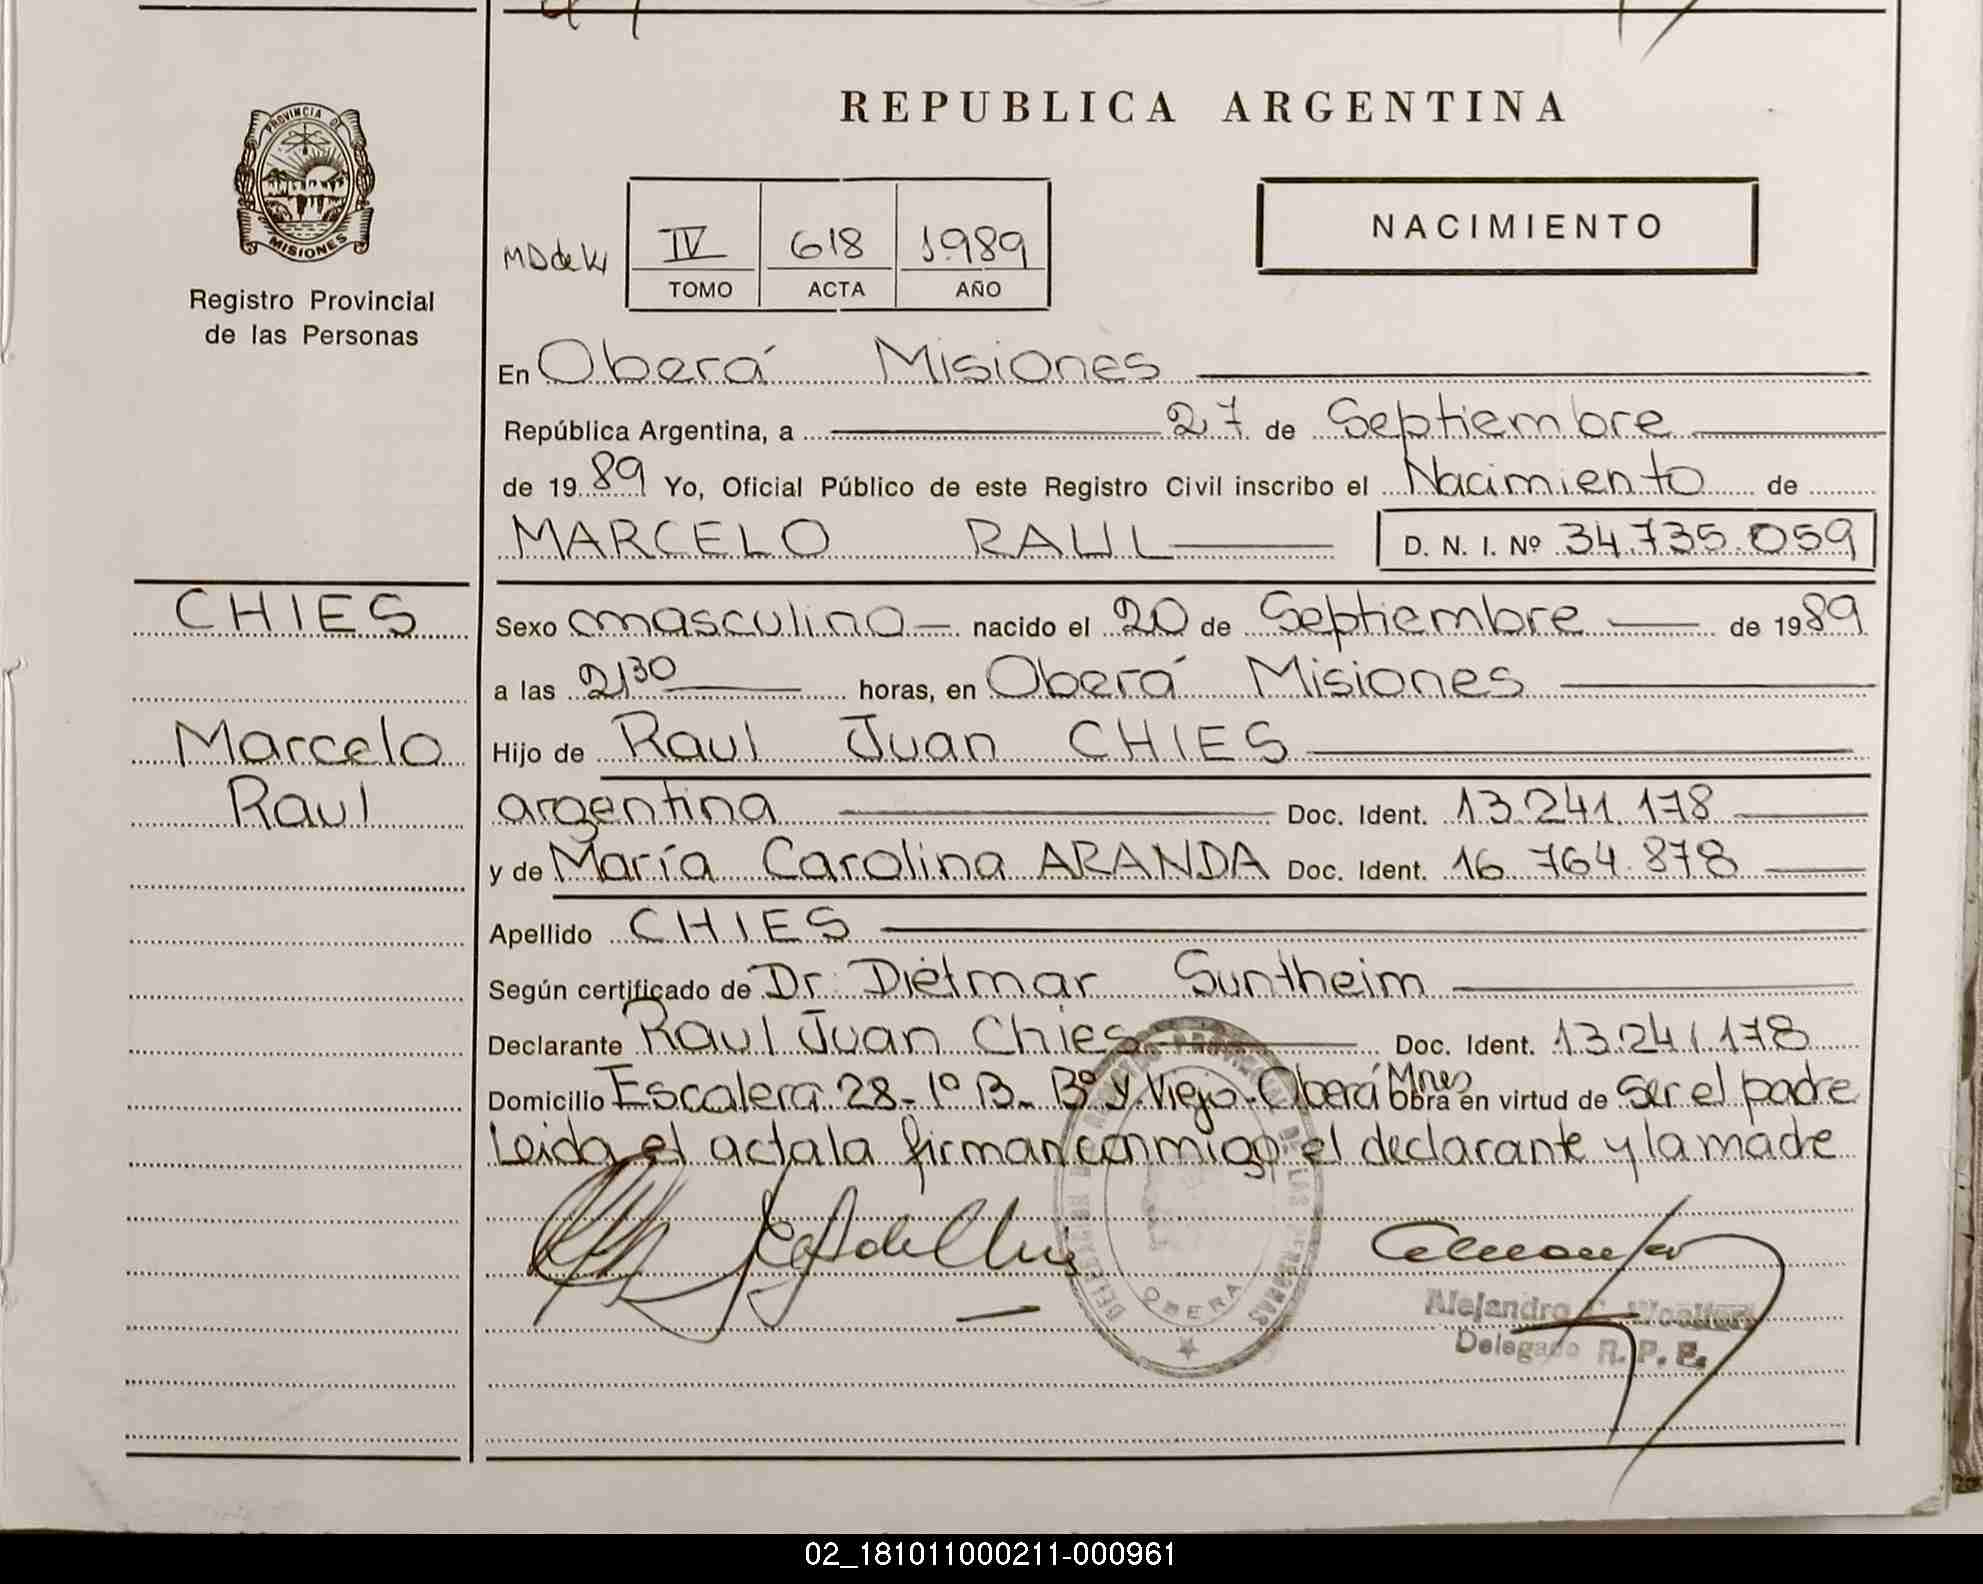 REPUBLICA ARGENTINA
PROVINCIA DE
MISIONES
Registro Provincial
de las Personas
NACIMIENTO
IV 618 1989
TOMO ACTA AÑO
En Oberá Misiones
República Argentina, a 27 de Septiembre
de 1989 Yo, Oficial Público de este Registro Civil inscribo el Nacimiento de
MARCELO RAUL D. N. I. Nº 34.735.059
CHIES
Marcelo
Raul
Sexo masculino nacido el 20 de Septiembre de 1989
a las 21 30 horas, en Oberá Misiones
Hijo de Raul Juan CHIES
argentina Doc. Ident. 13.241.178
y de María Carolina ARANDA Doc. Ident. 16.764.878
Apellido CHIES
Según certificado de Dr. Dietmar Suntheim
Declarante Raul Juan Chies Doc. Ident. 13.241.178
Domicilio Escalera 28-1º B- Bº Y. Viejo-Oberá Mnes Obra en virtud de ser el padre
Leida el acta la firman conmigo el declarante y la madre
OBERA
Alejandro
Delegado R. P. P.
02_181011000211-000961